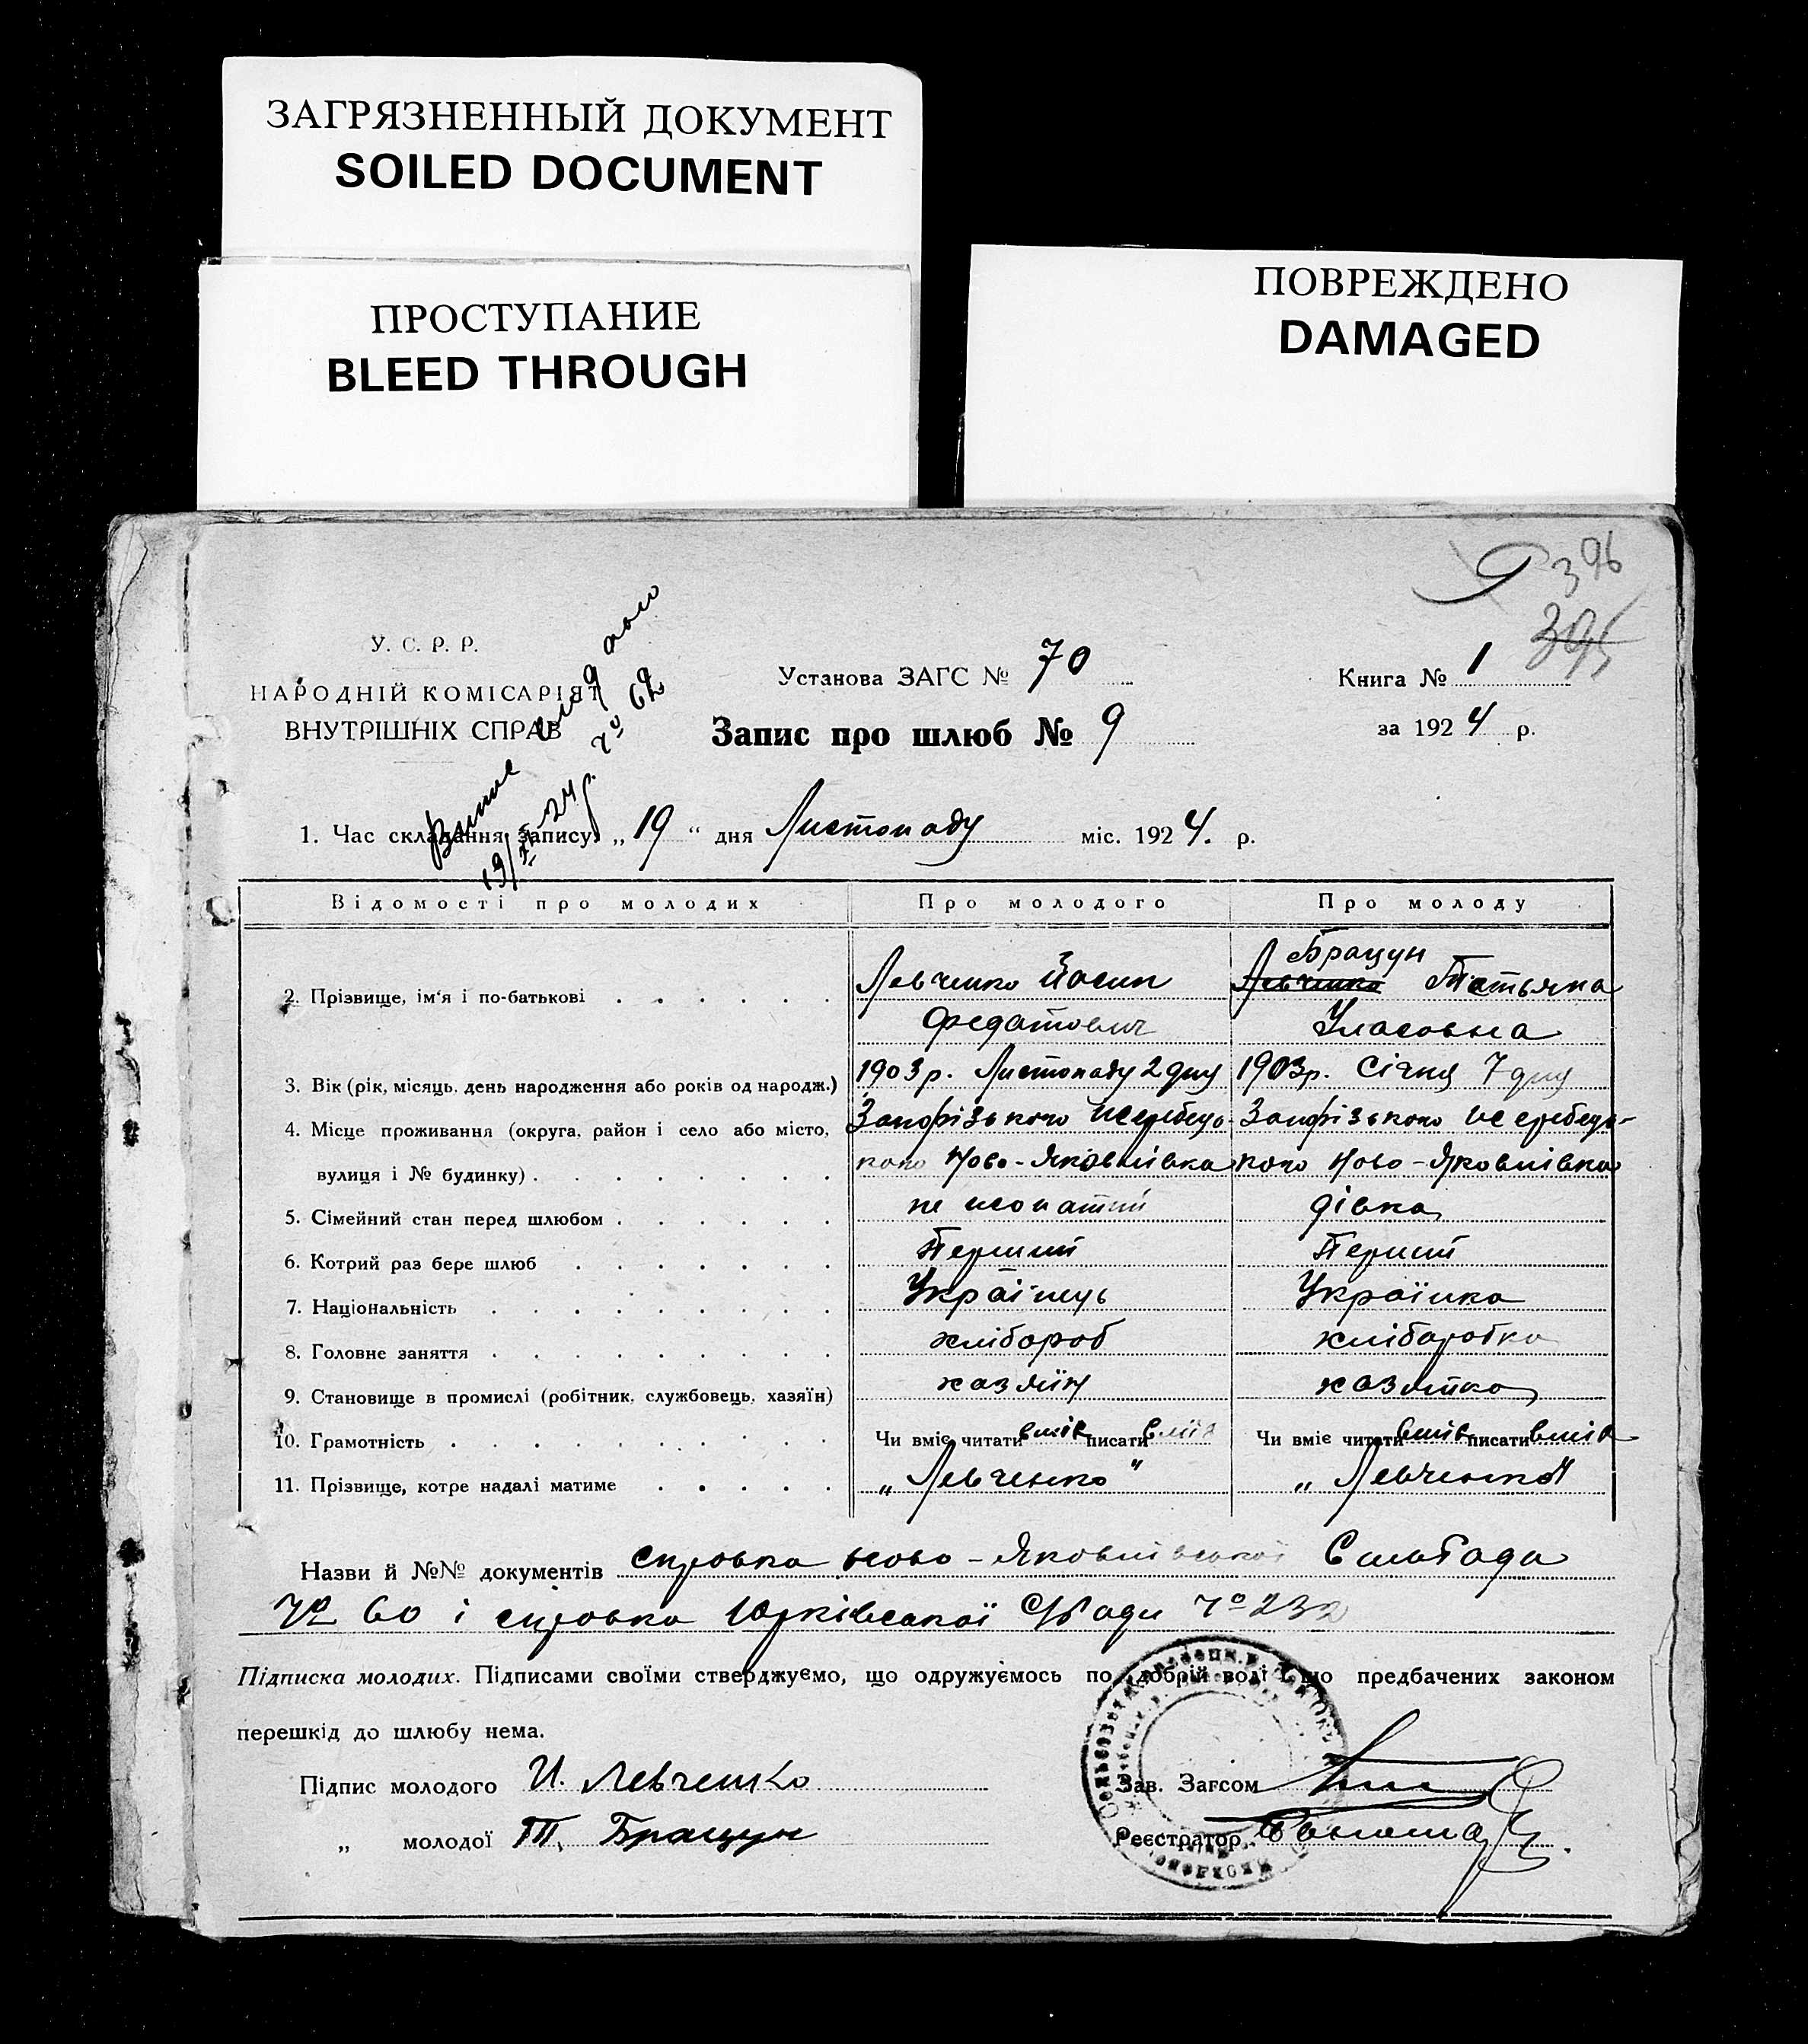 ЗАГРЯЗНЕННЫЙ ДОКУМЕНТ
SOILED DOCUMENT
ПРОСТУПАНИЕ
BLEED THROUGH
ПОВРЕЖДЕНО
DAMAGED
9 396
395
У. С. Р. Р.
НАРОДНІЙ КОМІСАРІЯТ
ВНУТРІШНІХ СПРАВ
19/XI-24р. № 62
Установа ЗАГС № 70
Книга № 1
Запис про шлюб № 9
за 1924 р.
1. Час складання запису „19“ дня Листопаду міс. 1924. р.
Відомості про молодих Про молодого Про молоду
Брацун
2. Прізвище, ім'я і по-батькові Левченко Йосип Левченко Татьяна
Федатович Уласовна
3. Вік (рік, місяць, день народження або років од народж.) 1903 р. Листопаду 2 дня 1903р. Січня 7 дня
4. Місце проживання (округа, район і село або місто,
вулиця і № будинку) Ново-Яковлівка Ново-Яковлівка
5. Сімейний стан перед шлюбом не жонатий дівка
6. Котрий раз бере шлюб Перший Перший
7. Національність Українець Українка
8. Головне заняття хлібороб хліборобка
9. Становище в промислі (робітник, службовець, хазяїн) хазяїн хазяйка
10. Грамотність Чи вміє читати вміє писати вміє Чи вміє читати вміє писати вміє
11. Прізвище, котре надалі матиме „Левченко“ „Левченко“
Назви й №№ документів справка Ново-Яковлівської Сільради
№ 60 і справка Юрківської С/Ради № 232
Підписка молодих. Підписами своїми стверджуємо, що одружуємось по добрій волі і що предбачених законом
перешкід до шлюбу нема.
Підпис молодого И. Левченко
Зав. Загсом
„ молодої Т. Брацун
Реєстратор